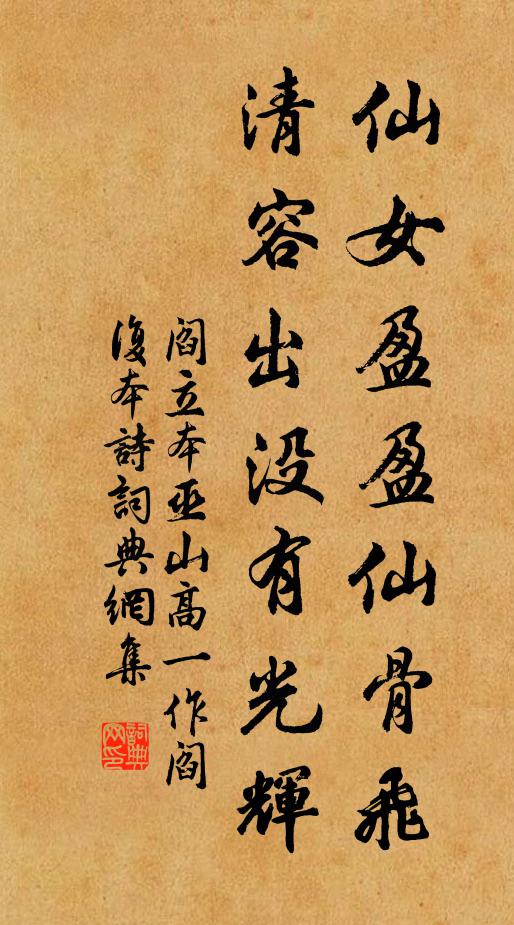 仙女盈盈仙骨飛
清容出沒有光輝
閻立本巫山高一作閻
復本詩詞典網集
詞典網印